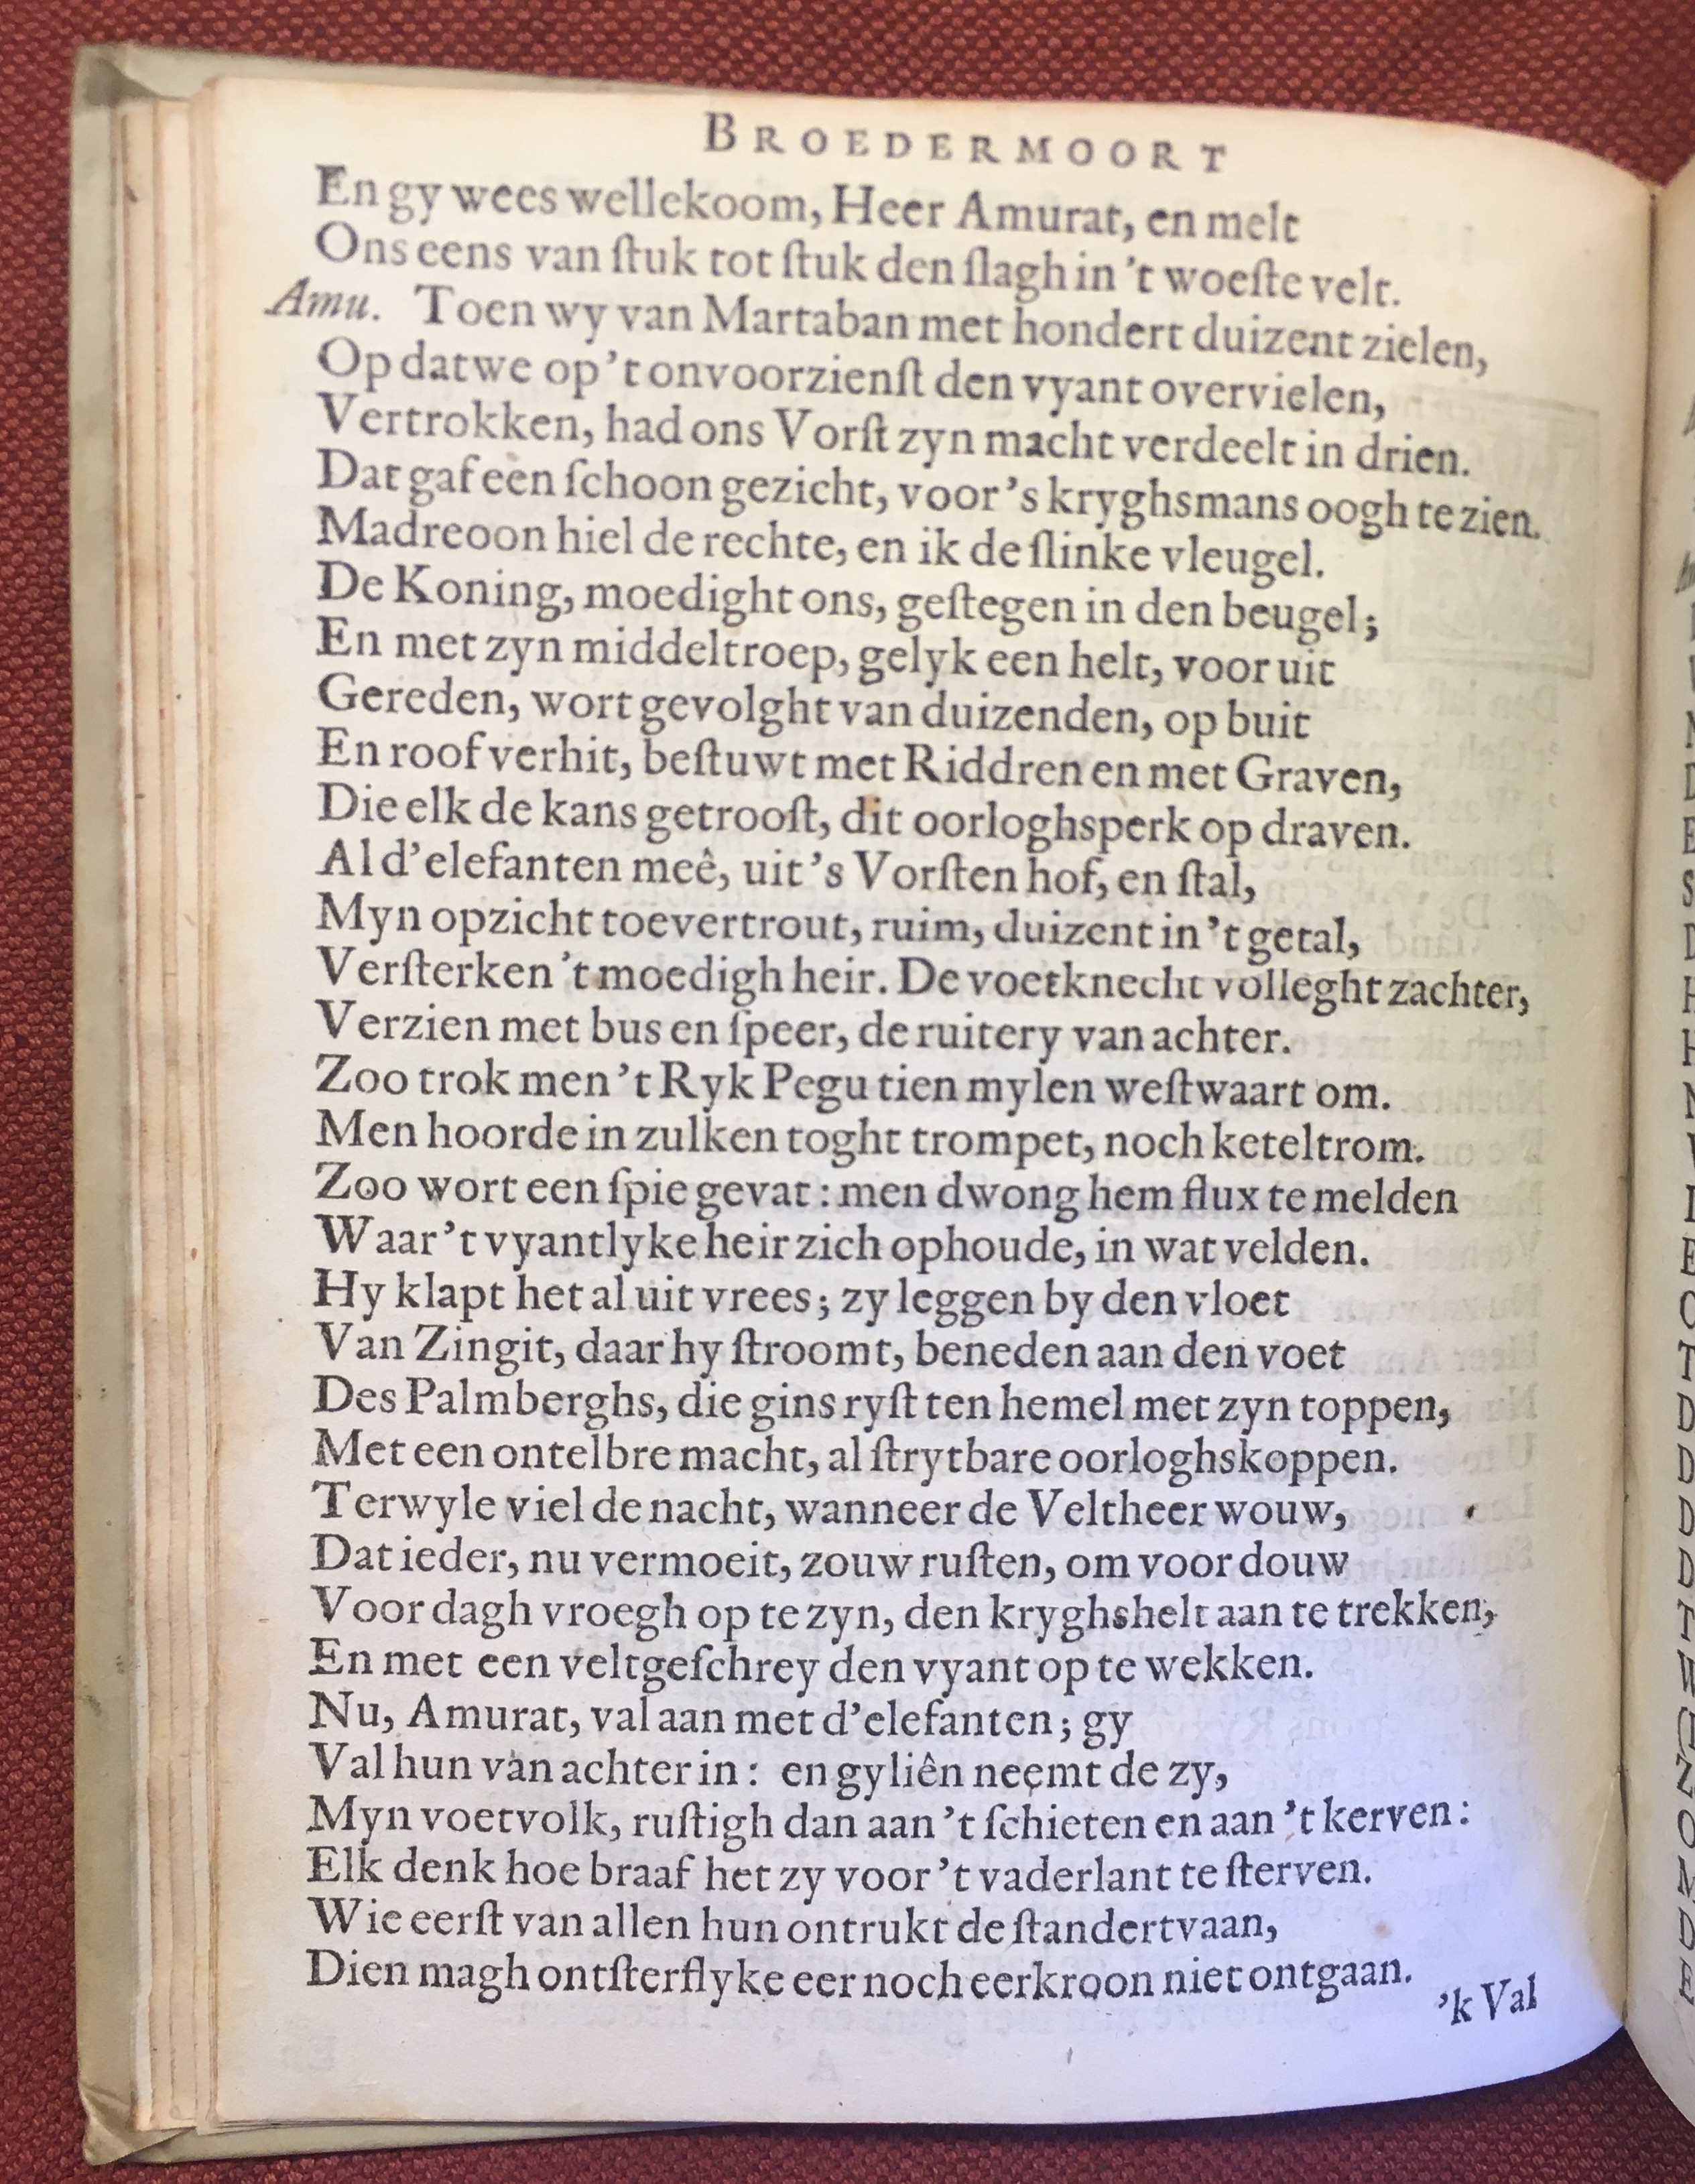 BROEDERMOORT
En gy wees wellekoom, Heer Amurat, en melt
Ons eens van ſtuk tot ſtuk den ſlagh in 't woeſte velt.
Amu. Toen wy van Martaban met hondert duizent zielen,
Op datwe op 't onvoorzienſt den vyant overvielen,
Vertrokken, had ons Vorſt zyn macht verdeelt in drien.
Dat gaf een ſchoon gezicht, voor 's kryghsmans oogh te zien.
Madreoon hiel de rechte, en ik de ſlinke vleugel.
De Koning, moedight ons, geſtegen in den beugel;
En met zyn middeltroep, gelyk een helt, voor uit
Gereden, wort gevolght van duizenden, op buit
En roof verhit, beſtuwt met Riddren en met Graven,
Die elk de kans getrooſt, dit oorloghsperk op draven.
Al d'elefanten meê, uit 's Vorſten hof, en ſtal,
Myn opzicht toevertrout, ruim, duizent in 't getal,
Verſterken 't moedigh heir. De voetknecht volleght zachter,
Verzien met bus en ſpeer, de ruitery van achter.
Zoo trok men 't Ryk Pegu tien mylen weſtwaart om.
Men hoorde in zulken toght trompet, noch keteltrom.
Zoo wort een ſpie gevat: men dwong hem flux te melden
Waar 't vyantlyke heir zich ophoude, in wat velden.
Hy klapt het al uit vrees; zy leggen by den vloet
Van Zingit, daar hy ſtroomt, beneden aan den voet
Des Palmberghs, die gins ryſt ten hemel met zyn toppen,
Met een ontelbre macht, al ſtrytbare oorloghskoppen.
Terwyle viel de nacht, wanneer de Veltheer wouw,
Dat ieder, nu vermoeit, zouw ruſten, om voor douw
Voor dagh vroegh op te zyn, den kryghshelt aan te trekken,
En met een veltgeſchrey den vyant op te wekken.
Nu, Amurat, val aan met d'elefanten; gy
Val hun van achter in: en gyliên neemt de zy,
Myn voetvolk, ruſtigh dan aan 't ſchieten en aan 't kerven:
Elk denk hoe braaf het zy voor 't vaderlant te ſterven.
Wie eerſt van allen hun ontrukt de ſtandertvaan,
Dien magh ontſterflyke eer noch eerkroon niet ontgaan.
'k Val